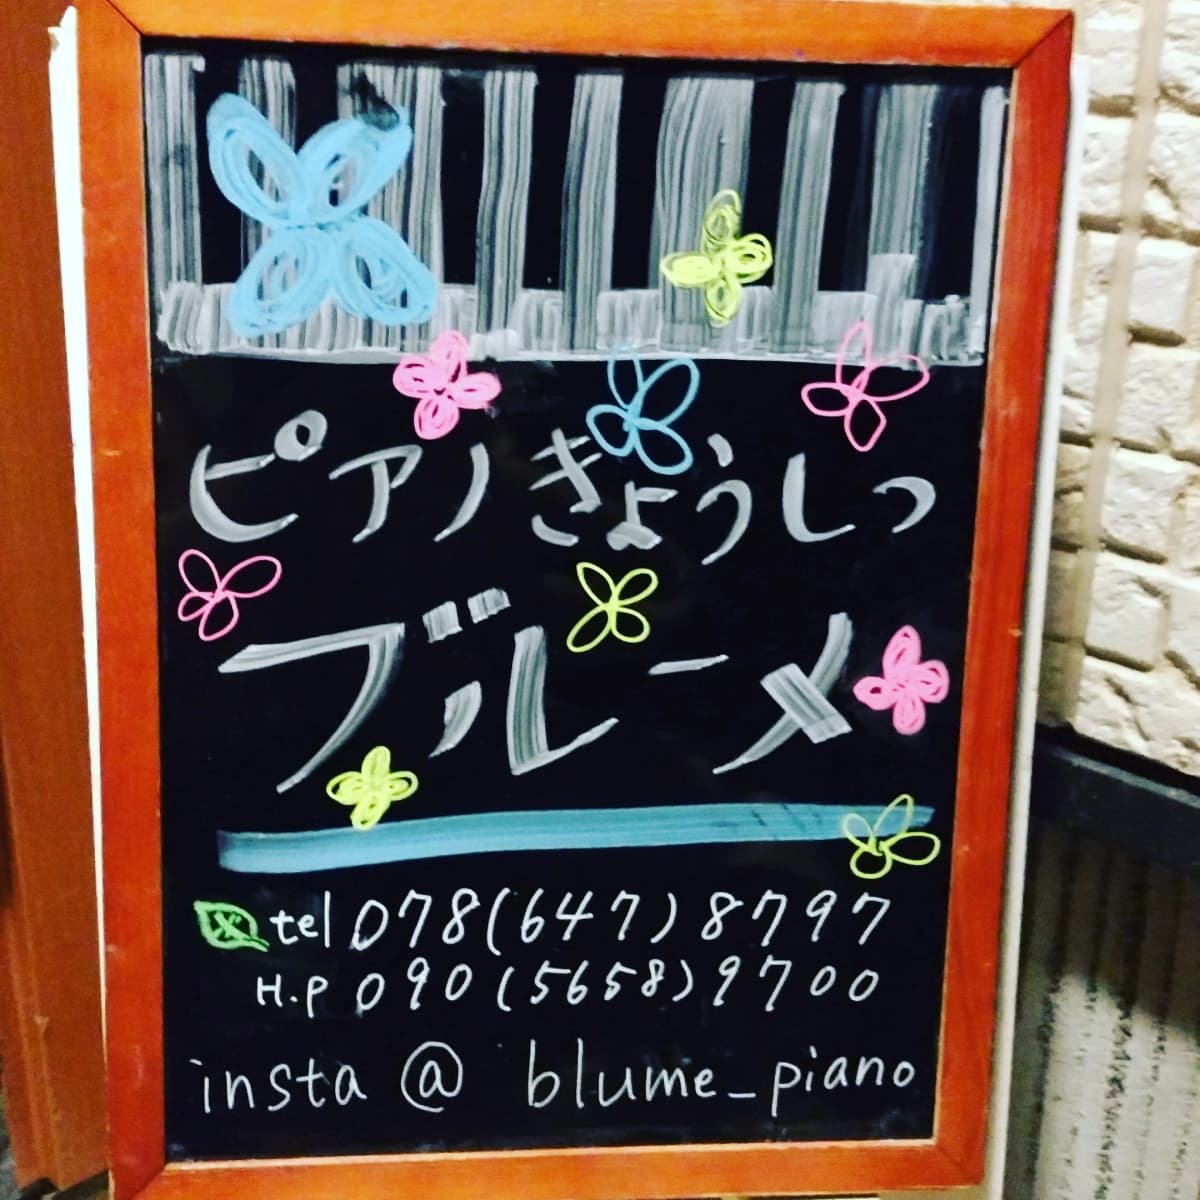 ピアノきょうしつ
ブルーメ
tel 078(647)8797
H.P 090(5658)9700
insta @ blume_piano